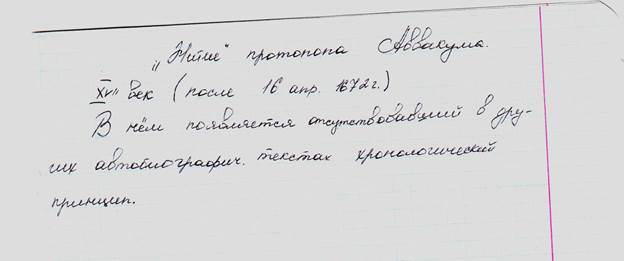 „Житие" протопопа Аввакума.
XVII век (после 16 апр. 1672г.)
В нём появляется отсутствовавший в дру-
гих автобиографич. текстах хронологический
принцип.